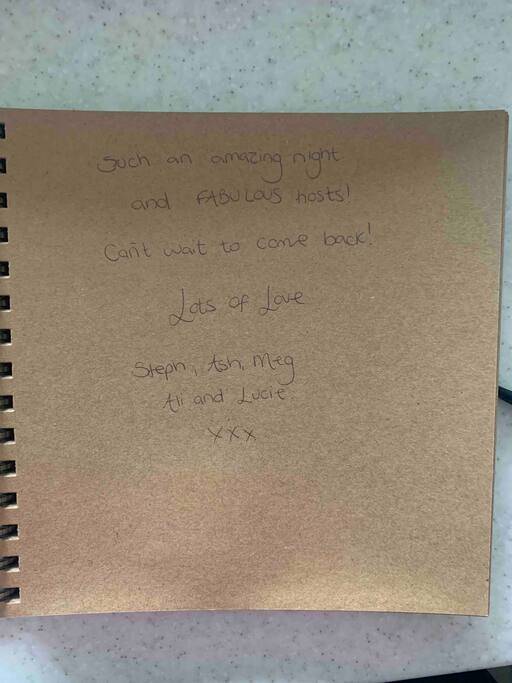 Such an amazing night
and FABULOUS hosts!
Can't wait to come back!
Lots of Love
Steph, Ash, Meg
Ali and Lucie
xxx